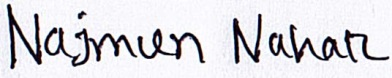 Najmun Nahar